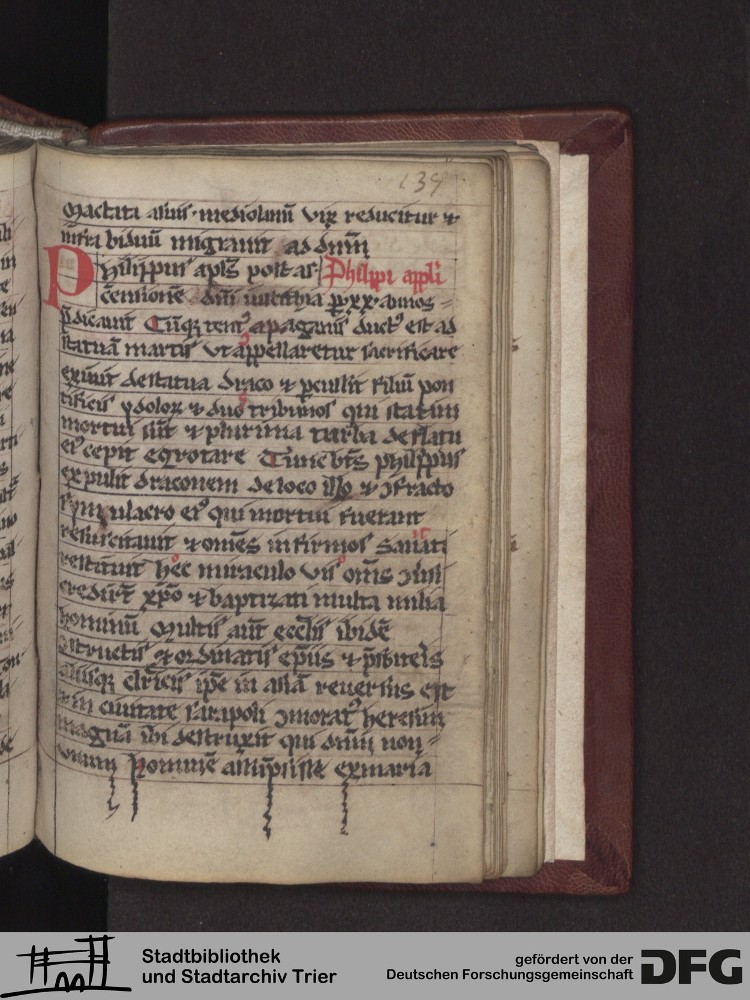 134
mediolanū vix reducitur ⁊
infra biduū migrauit ad dnm̄
Philippus apls̄ post as
Philippi appli
censionē dn̄i p xx annos
p̄dicauit Cūq; tent⁹ a paganis duct⁹ est ad
statuā martis vt appellaretur sacrificare
exiuit de statua draco ⁊ pculit filiū pon
tificis ydoloꝝ ⁊ duo tribunos qui statim
mortui sūt ⁊ plurima turba de flatu
ei⁹ cepit egrotare Tunc bt̄s philippus
expulit draconem de loco illo ⁊ ꝯfracto
symulacro ei⁹ qui mortui fuerant
resuscitauit ⁊ omēs infirmos sanitati
restituit hoc miraculo viso oms̄
credidert̄ xp̄o ⁊ baptizati multa milia
hominū Multis aūt eccl̄iis ibidē
ꝯstructis ⁊ ordinatis ep̄iis ⁊ p̄sbiteris
aliisq; clericis ip̄e in asiā reuersus est
⁊ in ciuitate ꝯmorat⁹ heresim
magnā ibi destruxit qui dnm̄ non
uerum hominē assūpsisse ex maria
Stadtbibliothek
und Stadtarchiv Trier
gefördert von der
Deutschen Forschungsgemeinschaft
DFG